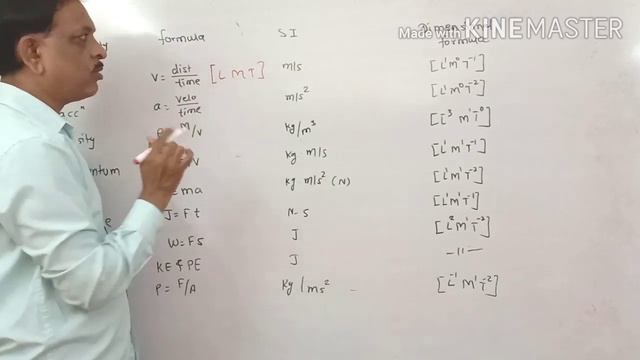 Made with KINEMASTER
formula SI Dimensional formula
V = dist/time [L M T] m/s [L¹M⁰T⁻¹]
acc" a = velo/time m/s² [L¹M⁰T⁻²]
sity m/v kg/m³ [L⁻³M¹T⁰]
ntum V kg m/s [L¹M¹T⁻¹]
= ma kg m/s² (N) [L¹M¹T⁻²]
J = Ft N-S [L¹M¹T⁻¹]
W = FS J [L²M¹T⁻²]
KE & PE J -11-
P = F/A kg/ms² [L⁻¹M¹T⁻²]